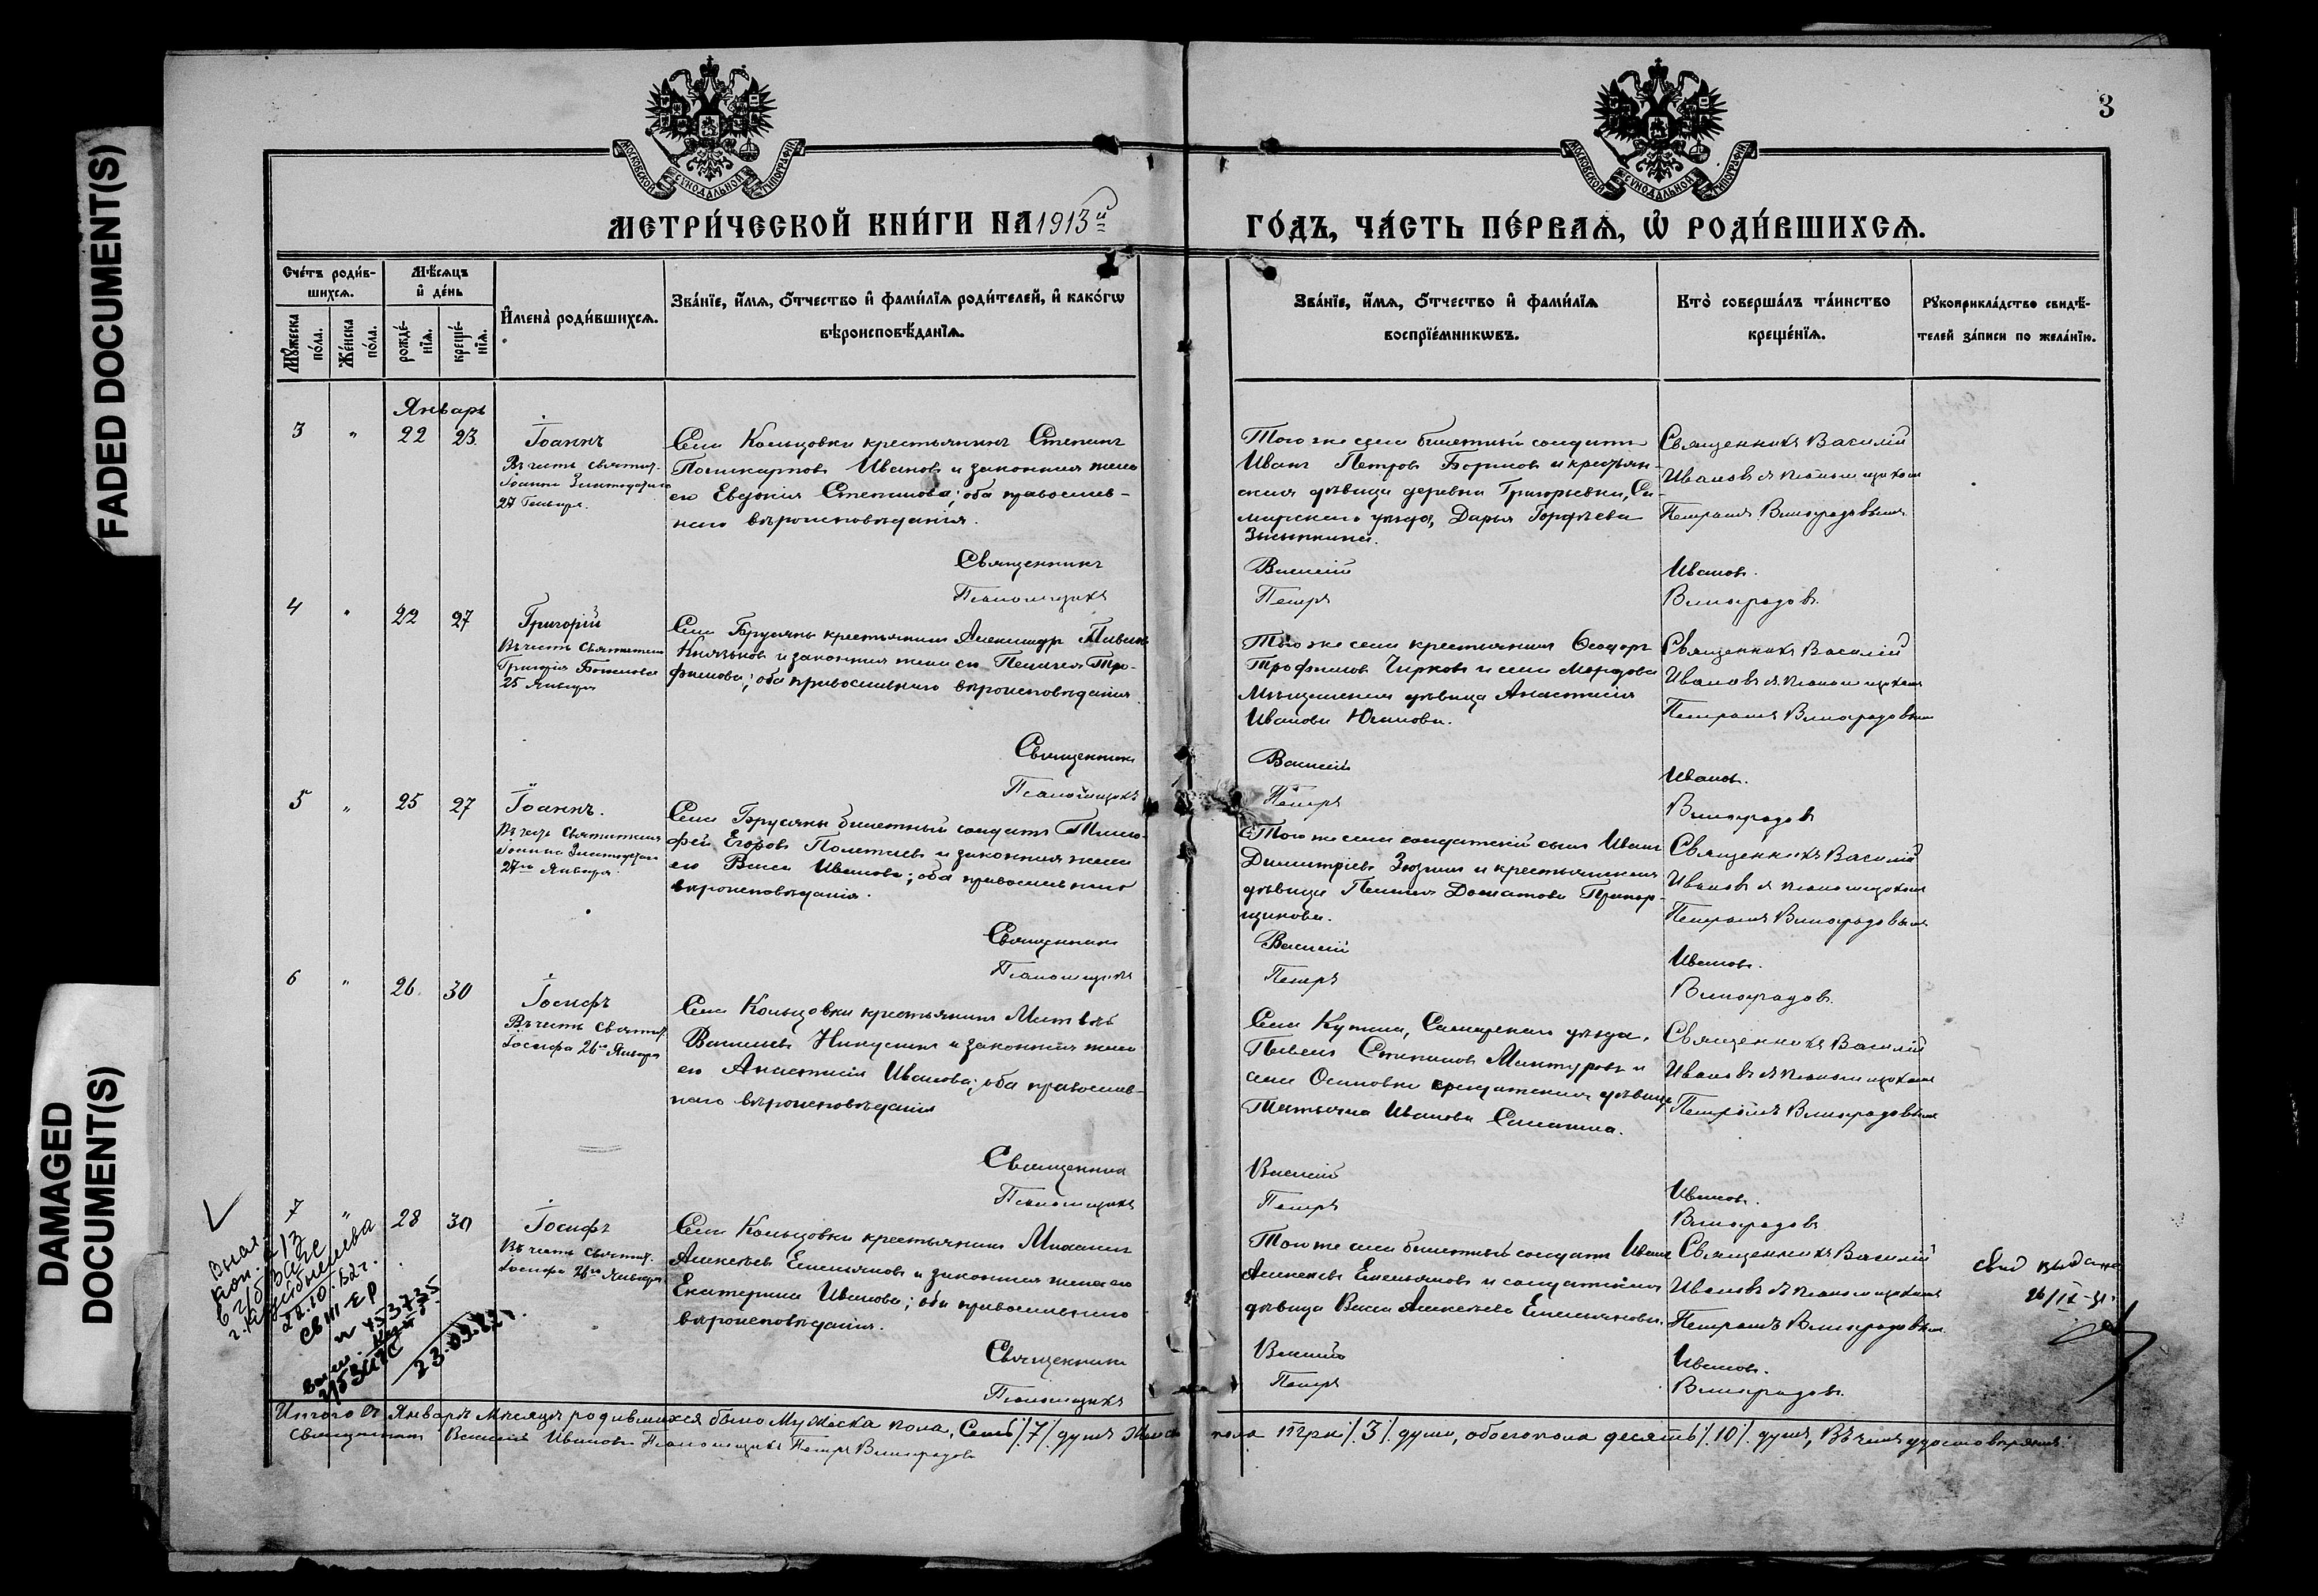 FADED DOCUMENT(S)
DAMAGED
DOCUMENT(S)
МОСКОВСКОЙ СѴНОДАЛЬНОЙ ТИПОГРАФІИ
МОСКОВСКОЙ СѴНОДАЛЬНОЙ ТИПОГРАФІИ
3
МЕТРИ́ЧЕСКОЙ КНИ́ГИ НА 1913й
ГО́ДЪ, ЧА́СТЬ ПЕ́РВАѦ, Ѽ РОДИ́ВШИХСѦ.
Сче́тъ роди́в-
шихсѧ.
Мꙋ́жеска
по́ла.
Же́нска
по́ла.
Мѣ́сѧцъ
и҆ де́нь
рожде́-
нїѧ.
креще́-
нїѧ.
И҆мена̀ роди́вшихсѧ.
Зва́нїе, и҆́мѧ, ѻ҆́тчество и҆ фами́лїѧ роди́телей, и҆ како́гѡ
вѣроисповѣ́данїѧ.
Зва́нїе, и҆́мѧ, ѻ҆́тчество и҆ фами́лїѧ
воспрїе́мникѡвъ.
Кто̀ соверша́лъ та́инство
креще́нїѧ.
Рꙋкоприкла́дство свидѣ́-
телей за́писи по жела́нїю.
Январь
3 " 22 23
Іоаннъ
Въ честь святит.
Іоанна Златоустаго
27 Января.
Села Кольцовки крестьянинъ Степанъ
Поликарповъ Ивановъ и законная жена
его Евдокія Степанова; оба православ-
наго вѣроисповѣданія.
Священникъ
Псаломщикъ
Того же села билетный солдатъ
Иванъ Петровъ Борисовъ и крестьян-
ская дѣвица деревни Григорьевки, Са-
марскаго уѣзда, Дарья Гордѣева
Василій
Петръ
Священникъ Василій
Ивановъ съ псаломщикомъ
Петромъ Виноградовымъ
Ивановъ.
Виноградовъ.
4 " 22 27
Григорій
Въ честь Святителя
Григорія Богослова
25 Января
Села Брусяны крестьянинъ Александръ Павловъ
Князьковъ и законная жена его Пелагея Тро-
фимова; оба православнаго вѣроисповѣданія.
Священникъ
Псаломщикъ
Того же села крестьянинъ Ѳеодоръ
Трофимовъ Чирковъ и села Мордова
Мѣщанская дѣвица Анастасія
Иванова Юдинова.
Василій
Петръ
Священникъ Василій
Ивановъ съ псаломщикомъ
Петромъ Виноградовымъ
Ивановъ.
Виноградовъ
5 " 25 27
Іоаннъ.
Въ честь Святителя
Іоанна Златоустаго
27го Января.
Села Брусяны билетный солдатъ Тимо-
фей Егоровъ Полетаевъ и законная жена
его Васса Иванова; оба православнаго
вѣроисповѣданія.
Священникъ
Псаломщикъ
Того же села солдатскій сынъ Иванъ
Димитріевъ Зюзинъ и крестьянская
дѣвица Пелагея Доматова Прапор-
щикова.
Василій
Петръ
Священникъ Василій
Ивановъ съ псаломщикомъ
Петромъ Виноградовымъ
Ивановъ.
Виноградовъ.
6 " 26 30
Іосифъ
Въ честь Святит.
Іосифа 26го Января
Села Кольцовки крестьянинъ Матвѣй
Васильевъ Никулинъ и законная жена
его Анастасія Иванова; оба православ-
наго вѣроисповѣданія
Священникъ
Псаломщикъ
Села Самарскаго уѣзда,
Павелъ Степановъ Мантуровъ и
села Осиновки солдатская дѣвица
Татьяна Иванова
Василій
Петръ
Священникъ Василій
Ивановъ съ псаломщикомъ
Петромъ Виноградовымъ
Ивановъ.
Виноградовъ
7 " 28 30
Іосифъ
Въ честь Святит.
Іосифа 26го Января
Села Кольцовки крестьянинъ Михаилъ
Алексѣевъ Емельяновъ и законная жена его
Екатерина Иванова; оба православнаго
вѣроисповѣданія.
Священникъ
Псаломщикъ
Того же села билетный солдатъ Иванъ
Алексѣевъ Емельяновъ и солдатская
дѣвица Васса Алексѣева Емельянова.
Василій
Петръ
Священникъ Василій
Ивановъ съ псаломщикомъ
Петромъ Виноградовымъ
Ивановъ.
Виноградовъ.
г. Куйбышева
22.10.52г.
СВ III-ЕР
23.02.82г.
Итого въ Январѣ мѣсяцѣ родившихся было мужеска пола, Семь /7/ душъ женска пола три /3/ души, обоего пола десять /10/ душъ, въ чемъ удостовѣряемъ:
Священникъ Василій Ивановъ Псаломщикъ Петръ Виноградовъ